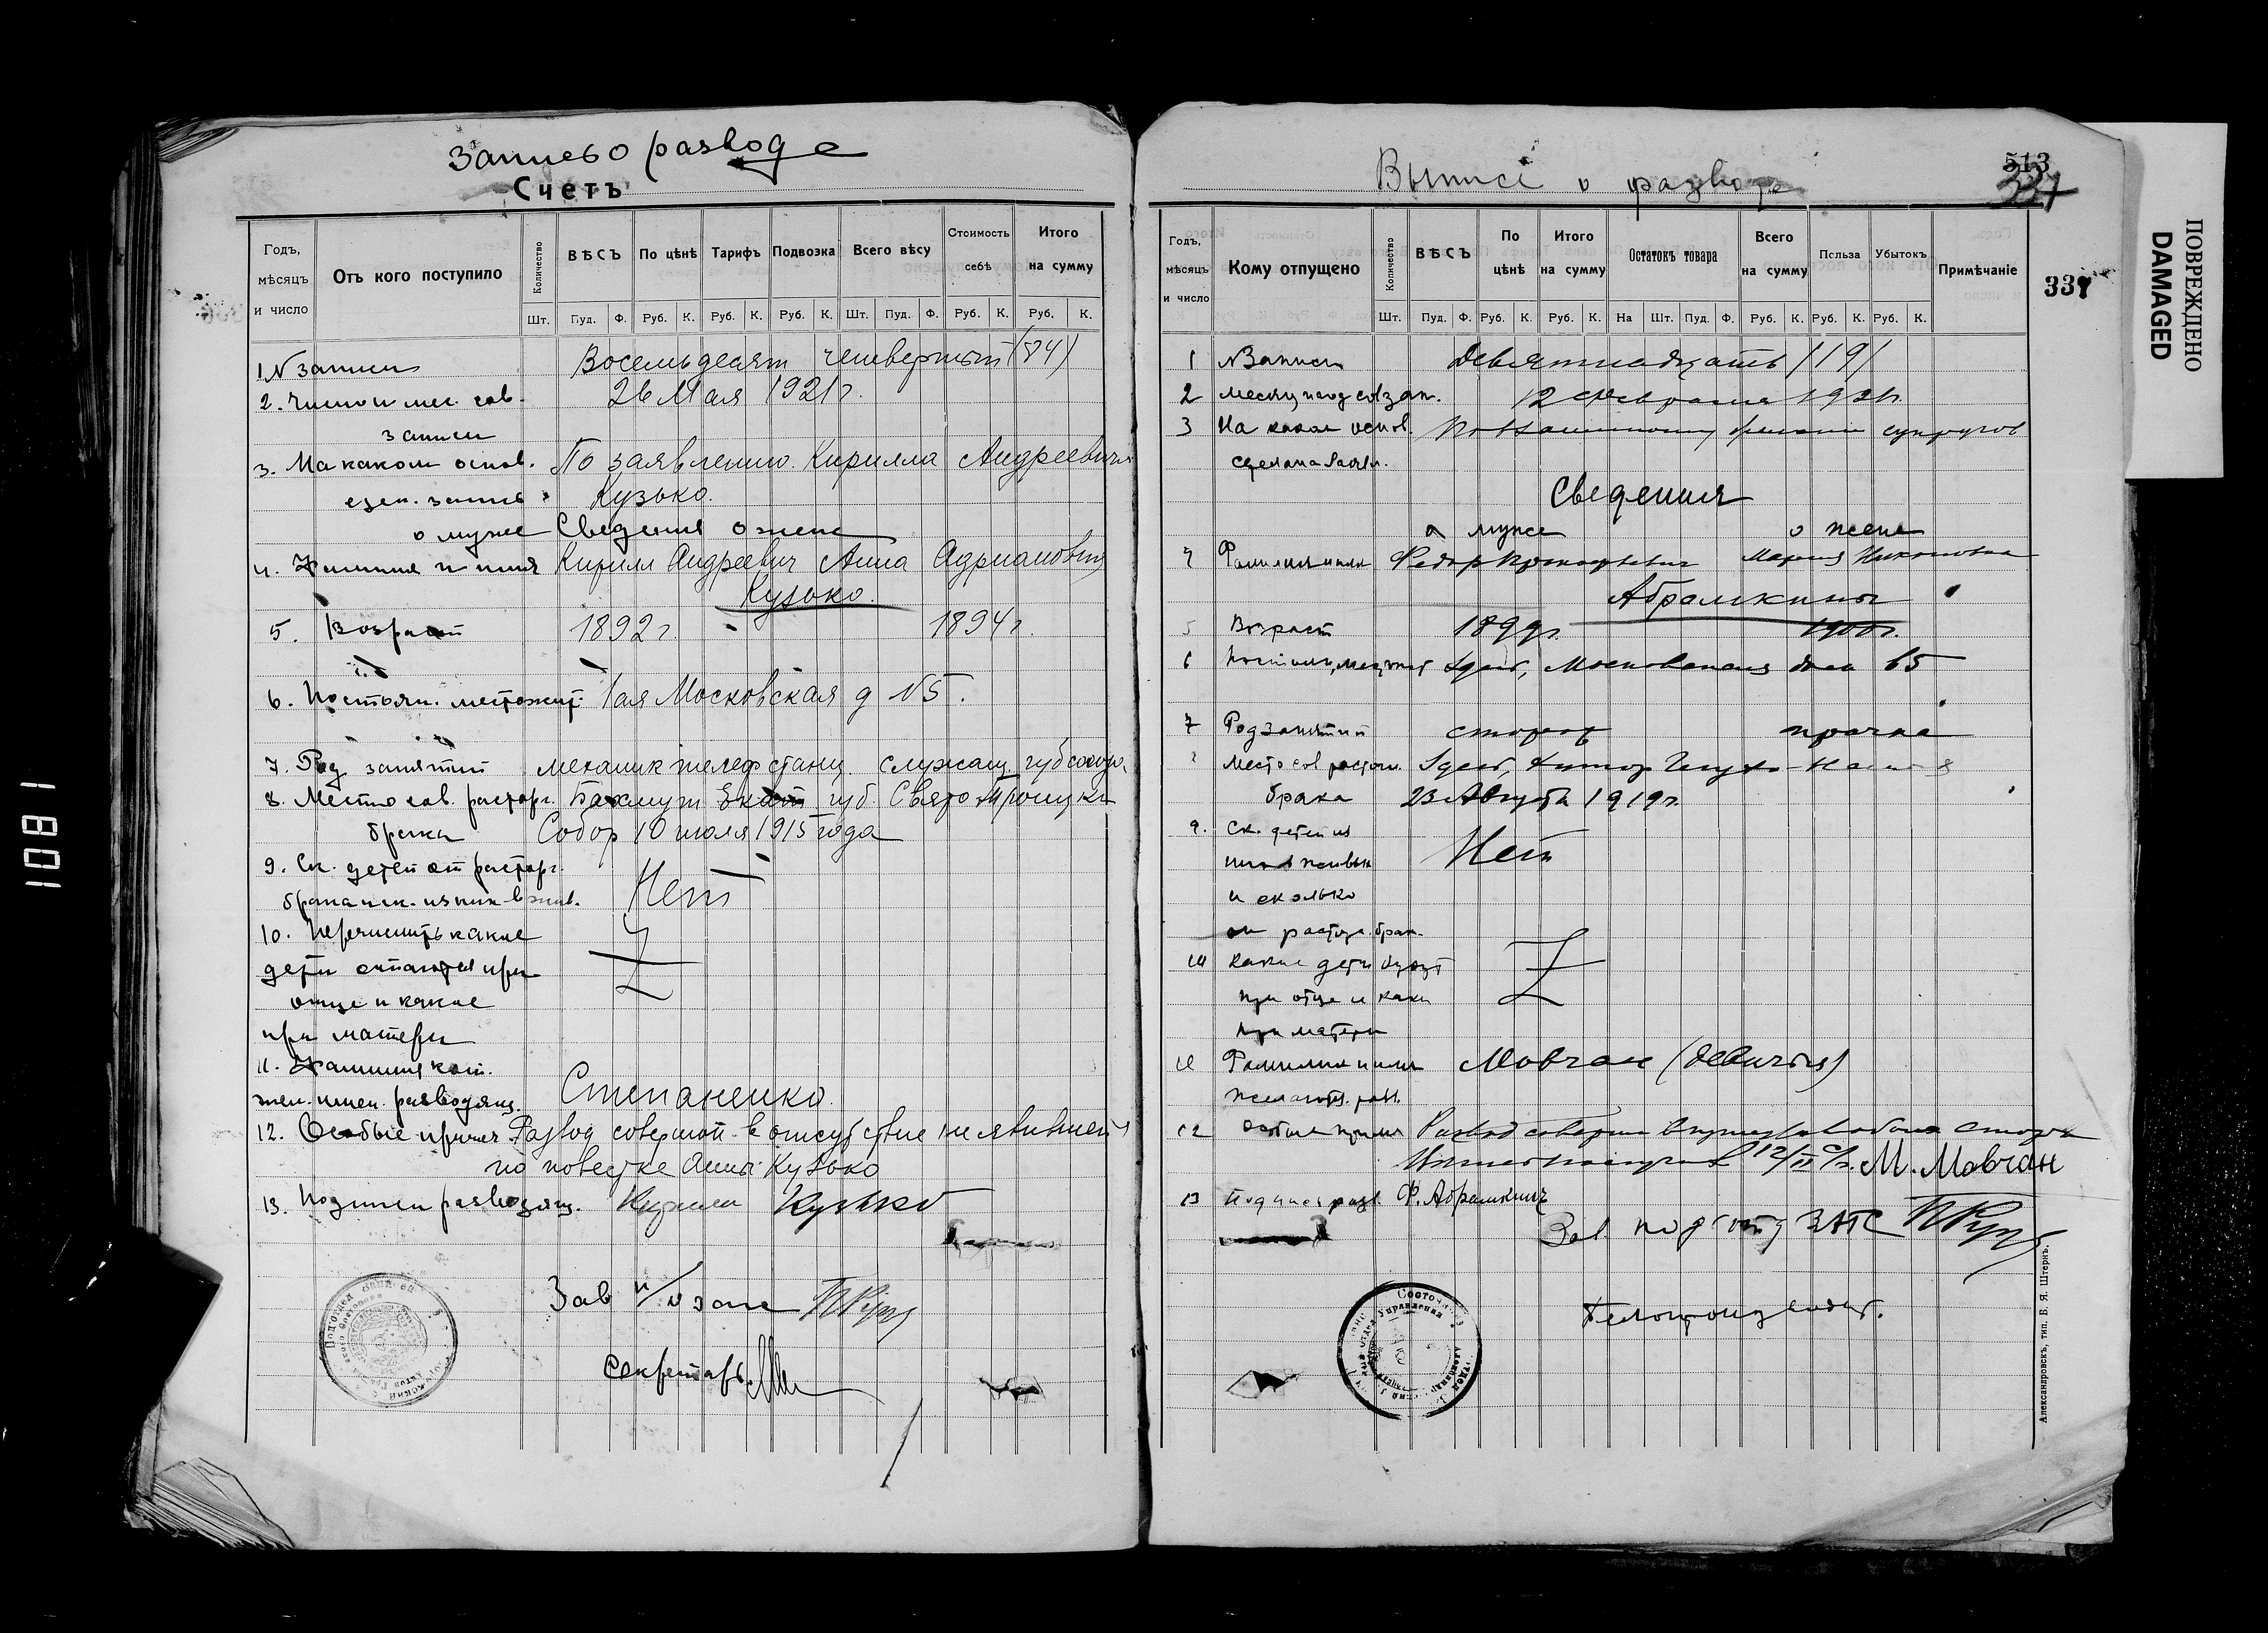 Запись о разводе
Счетъ
Годъ, мѣсяцъ и число
Отъ кого поступило
Количество
ВѢСЪ
По цѣнѣ
Тарифъ
Подвозка
Всего вѣсу
Стоимость себѣ
Итого на сумму
Шт. Пуд. Ф. Руб. К. Руб. К. Руб. К. Шт. Пуд. Ф. Руб. К. Руб. К.
1 N записи Восемьдесят четвертый (84)
2. Число и мес. сов. 26 Мая 1921 г.
записи
3. На каком основ. По заявлению Кирилла Андреевича
сдел. запись Кузько.
о муже Сведения о жене
4. Фамилия и имя Кирилл Андреевич Анна Адриановна
Кузько.
5. Возраст 1892 г. 1894 г.
6. Постоян. местожит. 1ая Московская д N 5.
7. Род занятий механик телеф станц. служащ.
8. Место сов. расторг. Бахмут Екат губ. Свято Троицки
брака Собор 10 июля 1915 года
9. Ск. детей от расторг.
брака и ск. из них в жив. Нет
10. Перечислить какие
дети остаются при
отце и какие
при матери
11. Фамилия кот.
жел. имен. разводящ. Степаненко.
12. Особые примеч Развод соверш. в отсутствие не явившейся
по повестке Анны Кузько
13. Подписи разводящ. Кирилл Кузько
Зав п/о загс
Секретарь
1081
Выпись о разводе
513
337
337
ПОВРЕЖДЕНО
DAMAGED
Годъ, мѣсяцъ и число
Кому отпущено
Количество
ВѢСЪ
По цѣнѣ
Итого на сумму
Остатокъ товара
Всего на сумму
Польза
Убытокъ
Примѣчаніе
Шт. Пуд. Ф. Руб. К. Руб. К. На Шт. Пуд. Ф. Руб. К. Руб. К. Руб. К.
1 N Записи Девятнадцать /19/
2 Месяц и год сов зап. 12 Февраля 1921 г.
3 На каком основ. По взаимному супругов
сделана
Сведения
о муже о жене
4 Фамилия и имя Федор Мария
Абрамкины
5 Возраст 1899 г. 1900 г.
6 Здесь, Московская дом 65
7 Род занятий сторож прачка
Место сов расторг. Здесь,
брака 23 Августа 1919 г.
9. Ск. детей из
Нет
и сколько
от расторг. брак.
10 Какие дети будут
при отце и каки
при матери
11 Фамилия и имя Мовчан (девичья)
12 Особые примеч Развод
12/II М. Мовчан
13 Подписи разв. Ф. Абрамкинъ
Зав. подотд ЗАГС
Александровскъ, тип. Б. Я. Штернъ.